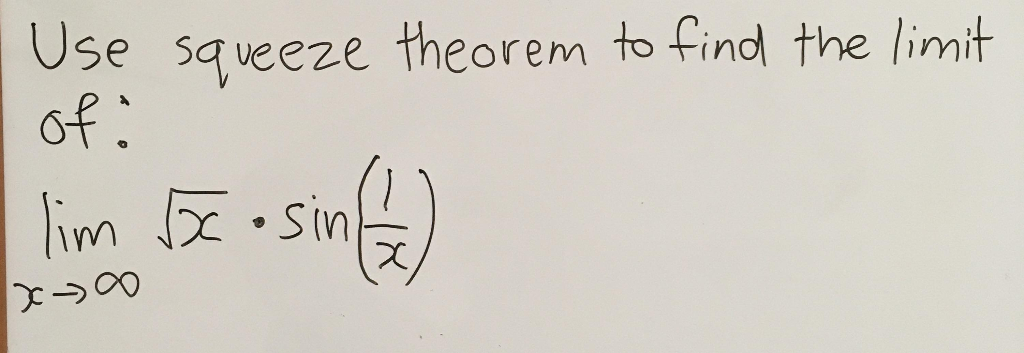 Use squeeze theorem to find the limit
of:
lim x→∞ √x · sin(1/x)